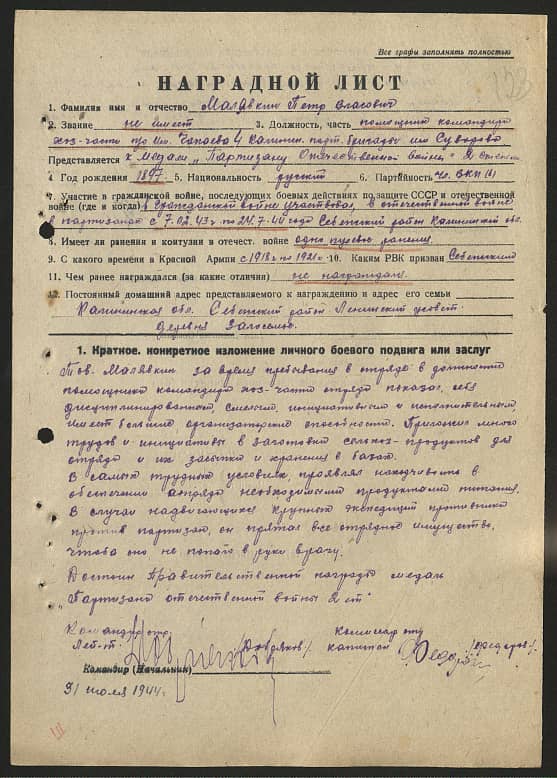 Все графы заполнять полностью
НАГРАДНОЙ ЛИСТ
1. Фамилия имя и отчество Малявкин Петр Власович
2. Звание не имеет 3. Должность, часть помощник командира
хоз-части п/о им. Чапаева 4 Калинин. парт. бригады им Суворова
Представляется к медали „Партизану Отечественной войны" 2 степени
4 Год рождения 1897 5. Национальность русский 6. Партийность чл. ВКП(б)
7. Участие в гражданской войне, последующих боевых действиях по защите СССР и отечественной
войне (где и когда) в гражданской войне участвовал, в отечественной войне
в партизанах с 7.02.43г по 24.7.44 года Себежский район Калининской обл.
8. Имеет ли ранения и контузии в отечест. войне одно пулевое ранение
9. С какого времени в Красной Армии с 1918г по 1921г 10. Каким РВК призван Себежским
11. Чем ранее награждался (за какие отличия) не награждался
12. Постоянный домашний адрес представляемого к награждению и адрес его семьи
Калининская обл. Себежский район Ленинский с/совет
деревня
1. Краткое, конкретное изложение личного боевого подвига или заслуг
Тов. Малявкин за время пребывания в отряде в должности
помощника командира хоз-части отряда показал себя
дисциплинированным, смелым, инициативным и исполнительным,
имеет большие организаторские способности. Приложил много
трудов и инициативы в заготовке сельхоз-продуктов для
отряда и их засыпки и хранения в базах.
В самых трудных условиях, проявлял находчивость в
обеспечении отряда необходимыми продуктами питания.
В случаи надвигающихся крупных экспедиций противника
против партизан, он прятал все отрядное имущество,
чтобы оно не попало в руки врагу.
Достоин Правительственной награды медаль
„Партизана отечественной войны 2 ст"
Командир отр. Комиссар отр
Лейт-т. капитан /Федоров/
Командир (Начальник)
31 июля 1944г.